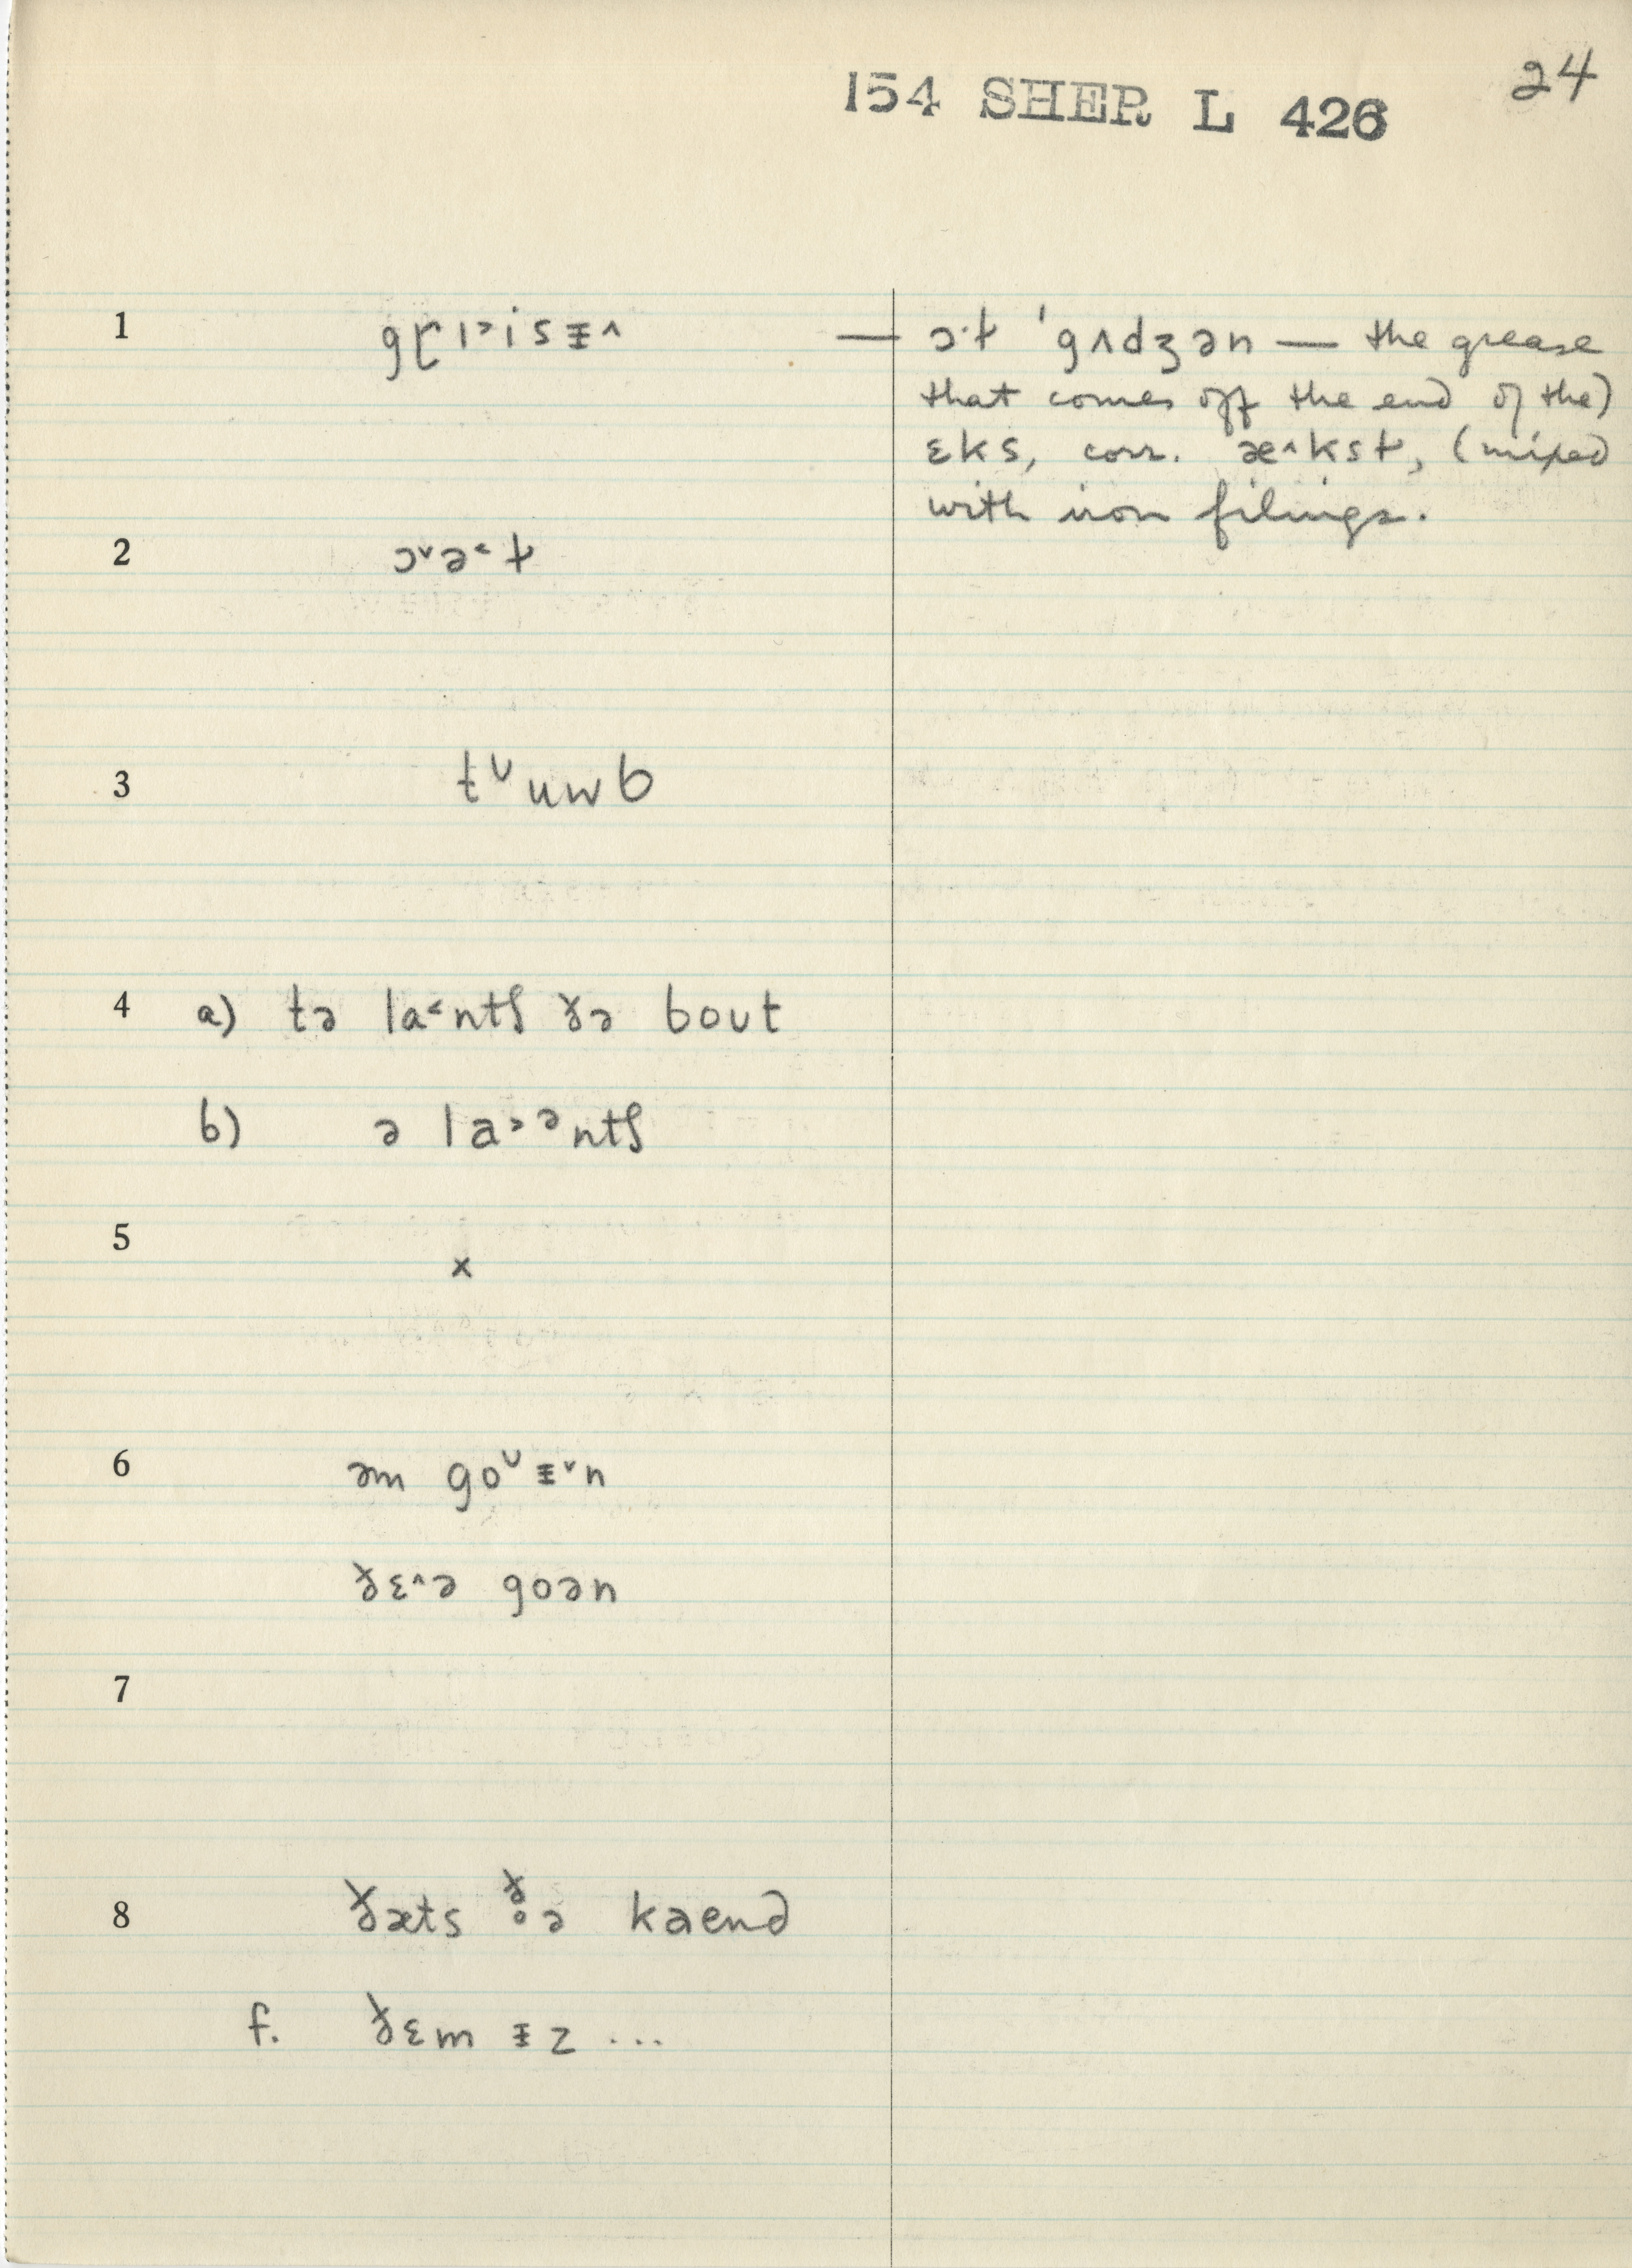 24
154 SHER L 426
1 gɽɪ˃isɪ̵˄ — ɔ·ɫ ˈgʌdʒən — the grease
that comes off the end of the)
ɛks, corr. æ˄kst, (mixed
with iron filings.
2 ɔ˅ə˂ɫ
3 tᶸuwb
4 a) tə la˂ntʃ ðə bout
b) ə la˃ᵊntʃ
5 x
6 əm goᶸɪ̵˅n
ðɛ˄ə goən
7
8 ðæts ðə kaend
f. ðɛm ɪ̵z ...